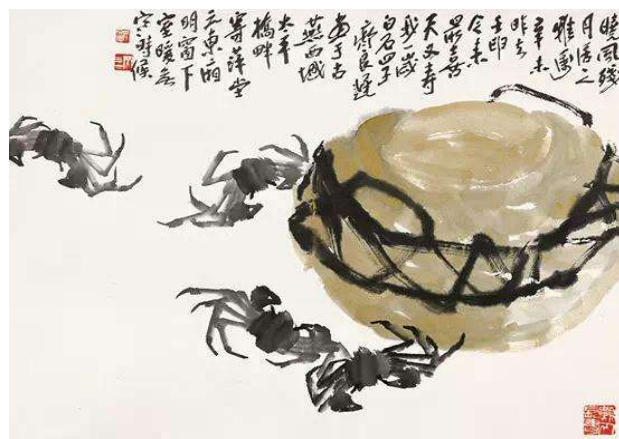 曉風殘
月
辛未
昨去
壬申
今来
最喜
天又壽
我一歲
白石四子
齊良遲
畫于古
燕西城
太平
橋畔
寄萍堂
東廂
明窗下
室暖無
時候